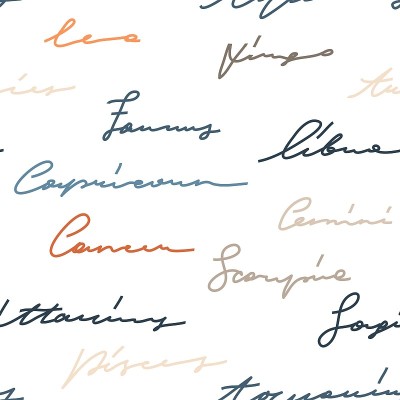 leo
Virgo
ries
Taurus
libra
Capricorn
Gemini
Cancer
Scorpio
Sagi
Pisces